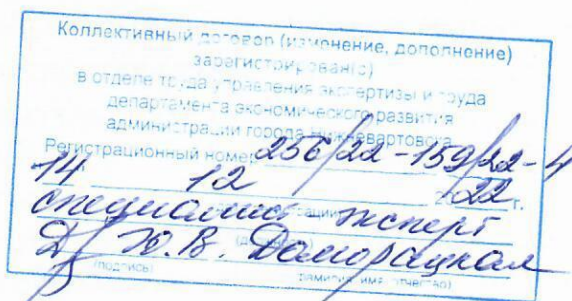 Коллективный договор (изменение, дополнение)
зарегистрирован(о)
в отделе труда управления экспертизы и труда
департамента экономического развития
администрации города Нижневартовска
Регистрационный номер 256/22-159/22-4
14 12 2022 г.
специалист эксперт
Ю.В. Доморацкая
(подпись) фамилия, имя, отчество)